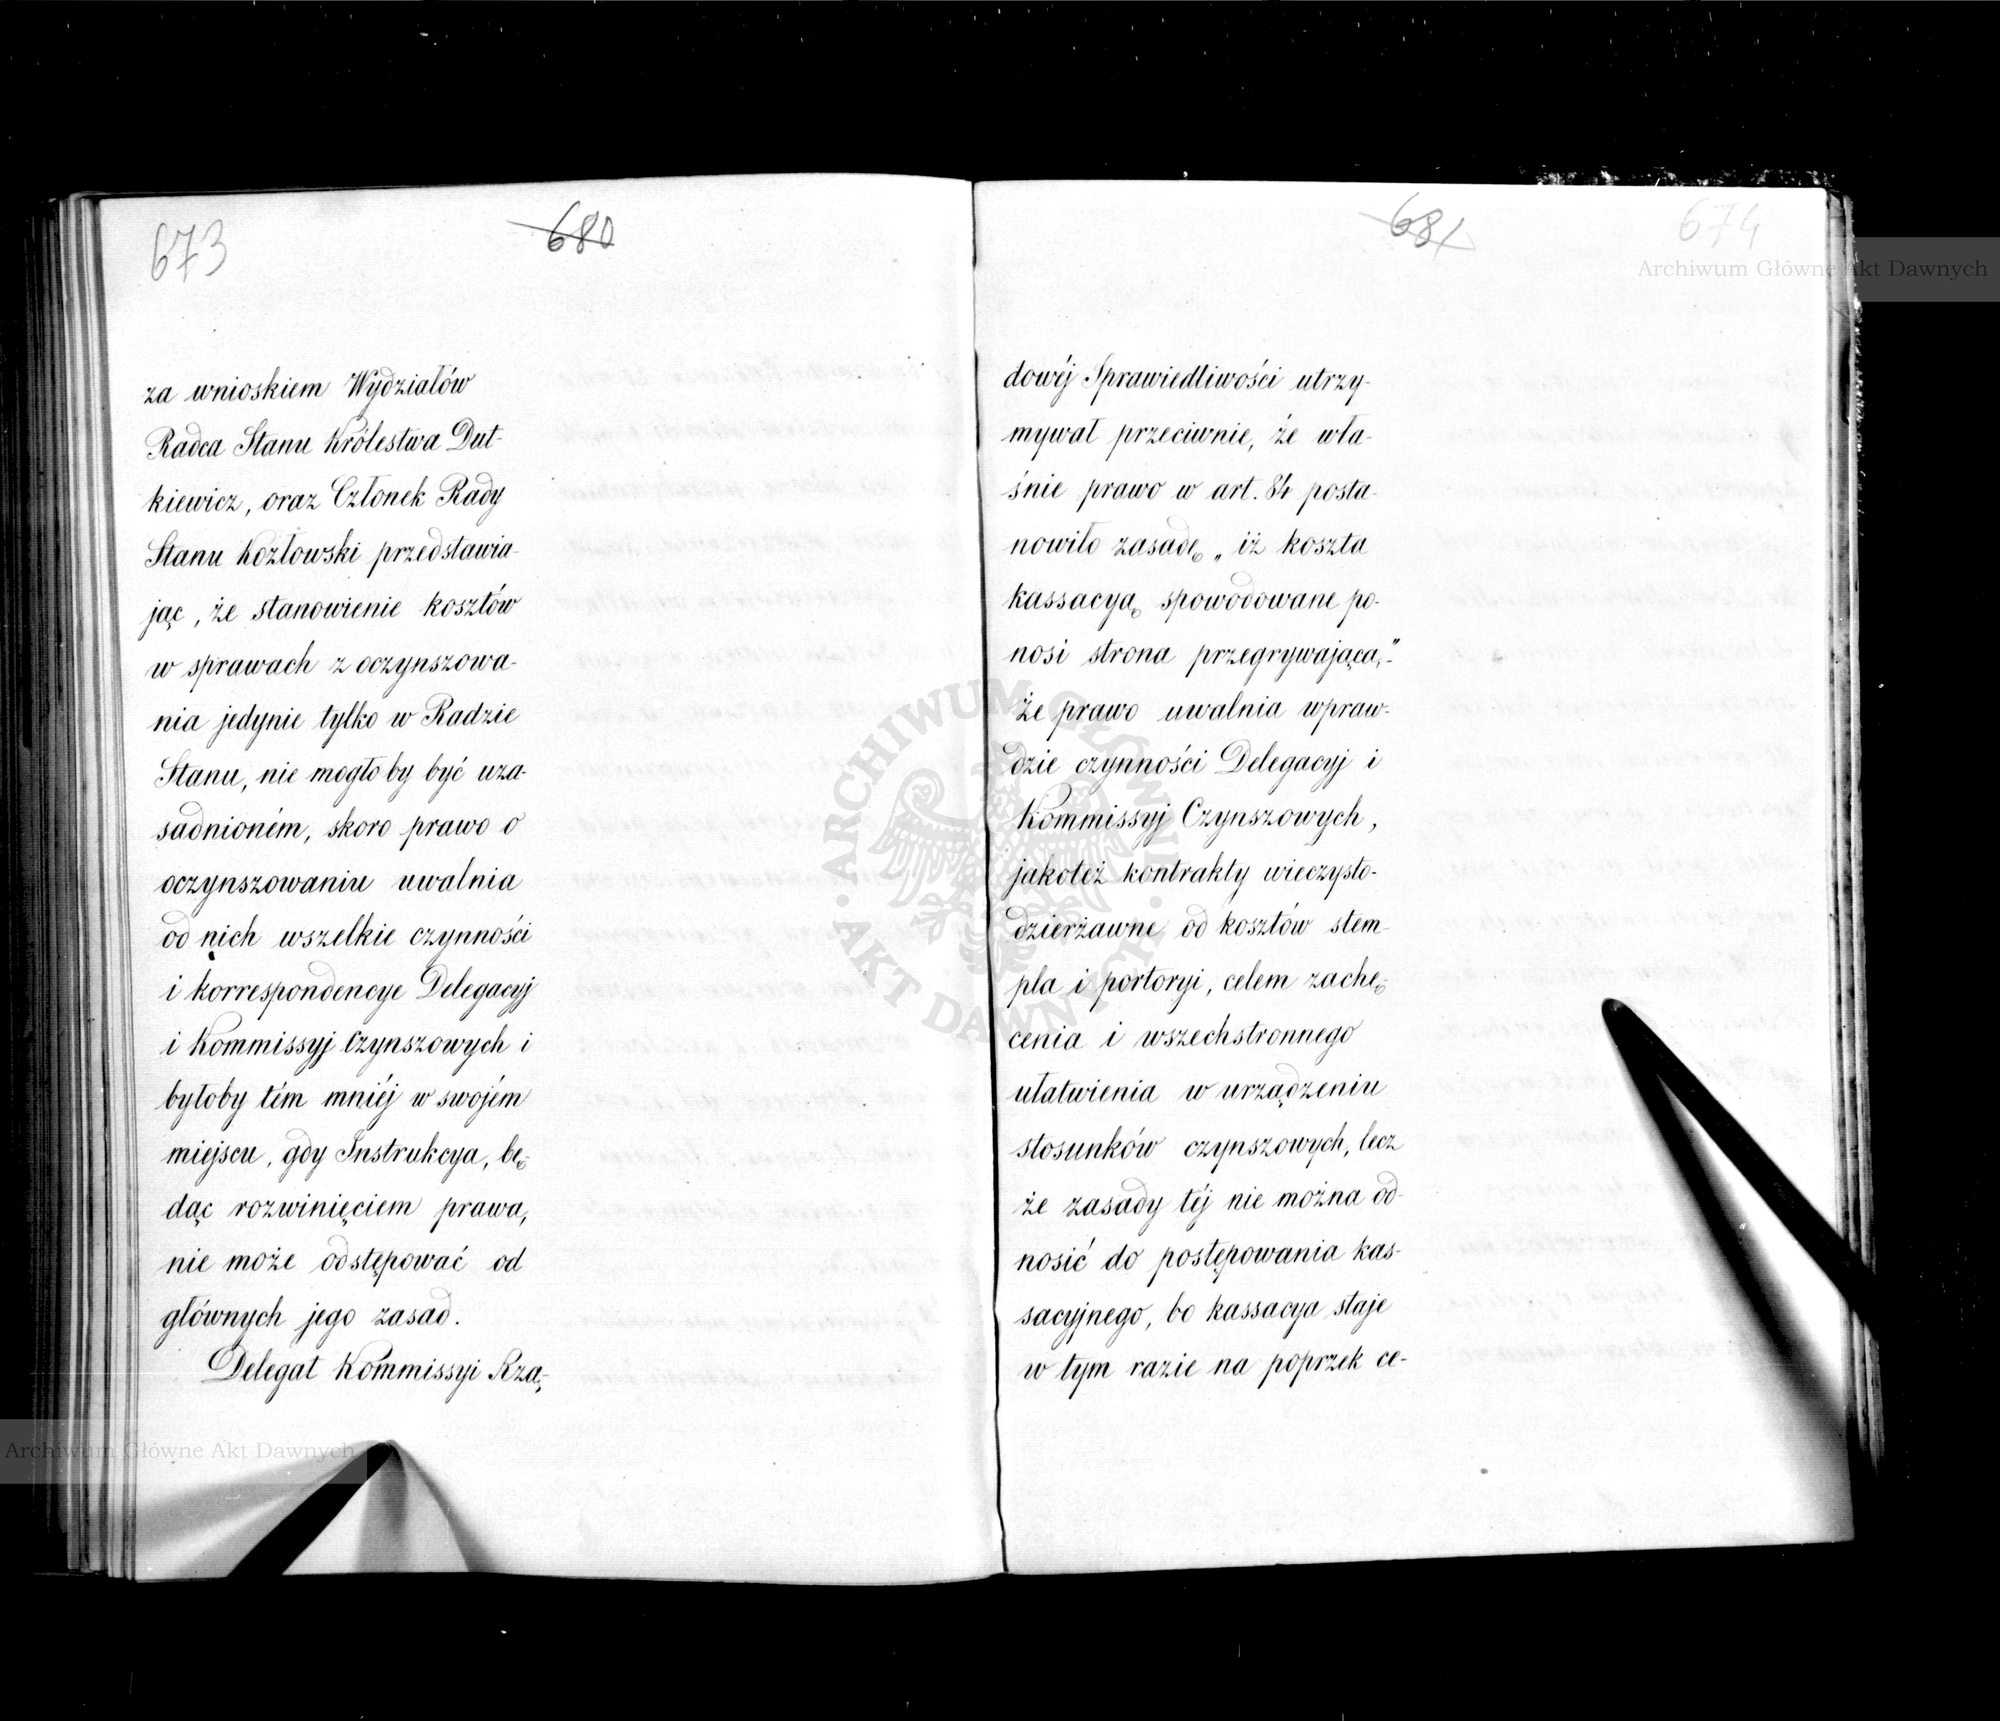 673
680
za wnioskiem Wydziałów
Radca Stanu Królestwa Dut-
kiewicz, oraz Członek Rady
Stanu Kozłowski przedstawia-
jąc, że stanowienie kosztów
w sprawach z oczynszowa-
nia jedynie tylko w Radzie
Stanu, nie mogłoby być uza-
sadnioném, skoro prawo o
oczynszowaniu uwalnia
od nich wszelkie czynności
i korrespondencye Delegacyj
i Kommissyj Czynszowych i
byłoby tém mniéj w swojém
miejscu, gdy Instrukcya, bę-
dąc rozwinięciem prawa,
nie może odstępować od
głównych jego zasad.
Delegat Kommissyi Rzą-
681
674
dowéj Sprawiedliwości utrzy-
mywał przeciwnie, że wła-
śnie prawo w art. 84 posta-
nowiło zasadę „iż koszta
kassacyą spowodowane po-
nosi strona przegrywająca,"-
że prawo uwalnia wpraw-
dzie czynności Delegacyj i
Kommissyj Czynszowych,
jakoteż kontrakty wieczysto-
dzierżawne od kosztów stem-
pla i portoryi, celem zachę-
cenia i wszechstronnego
ułatwienia w urządzeniu
stosunków czynszowych, lecz
że zasady téj nie można od-
nosić do postępowania kas-
sacyjnego, bo kassacya staje
w tym razie na poprzek ce-
Archiwum Główne Akt Dawnych
Archiwum Główne Akt Dawnych
ARCHIWUM GŁÓWNE
AKT DAWNYCH